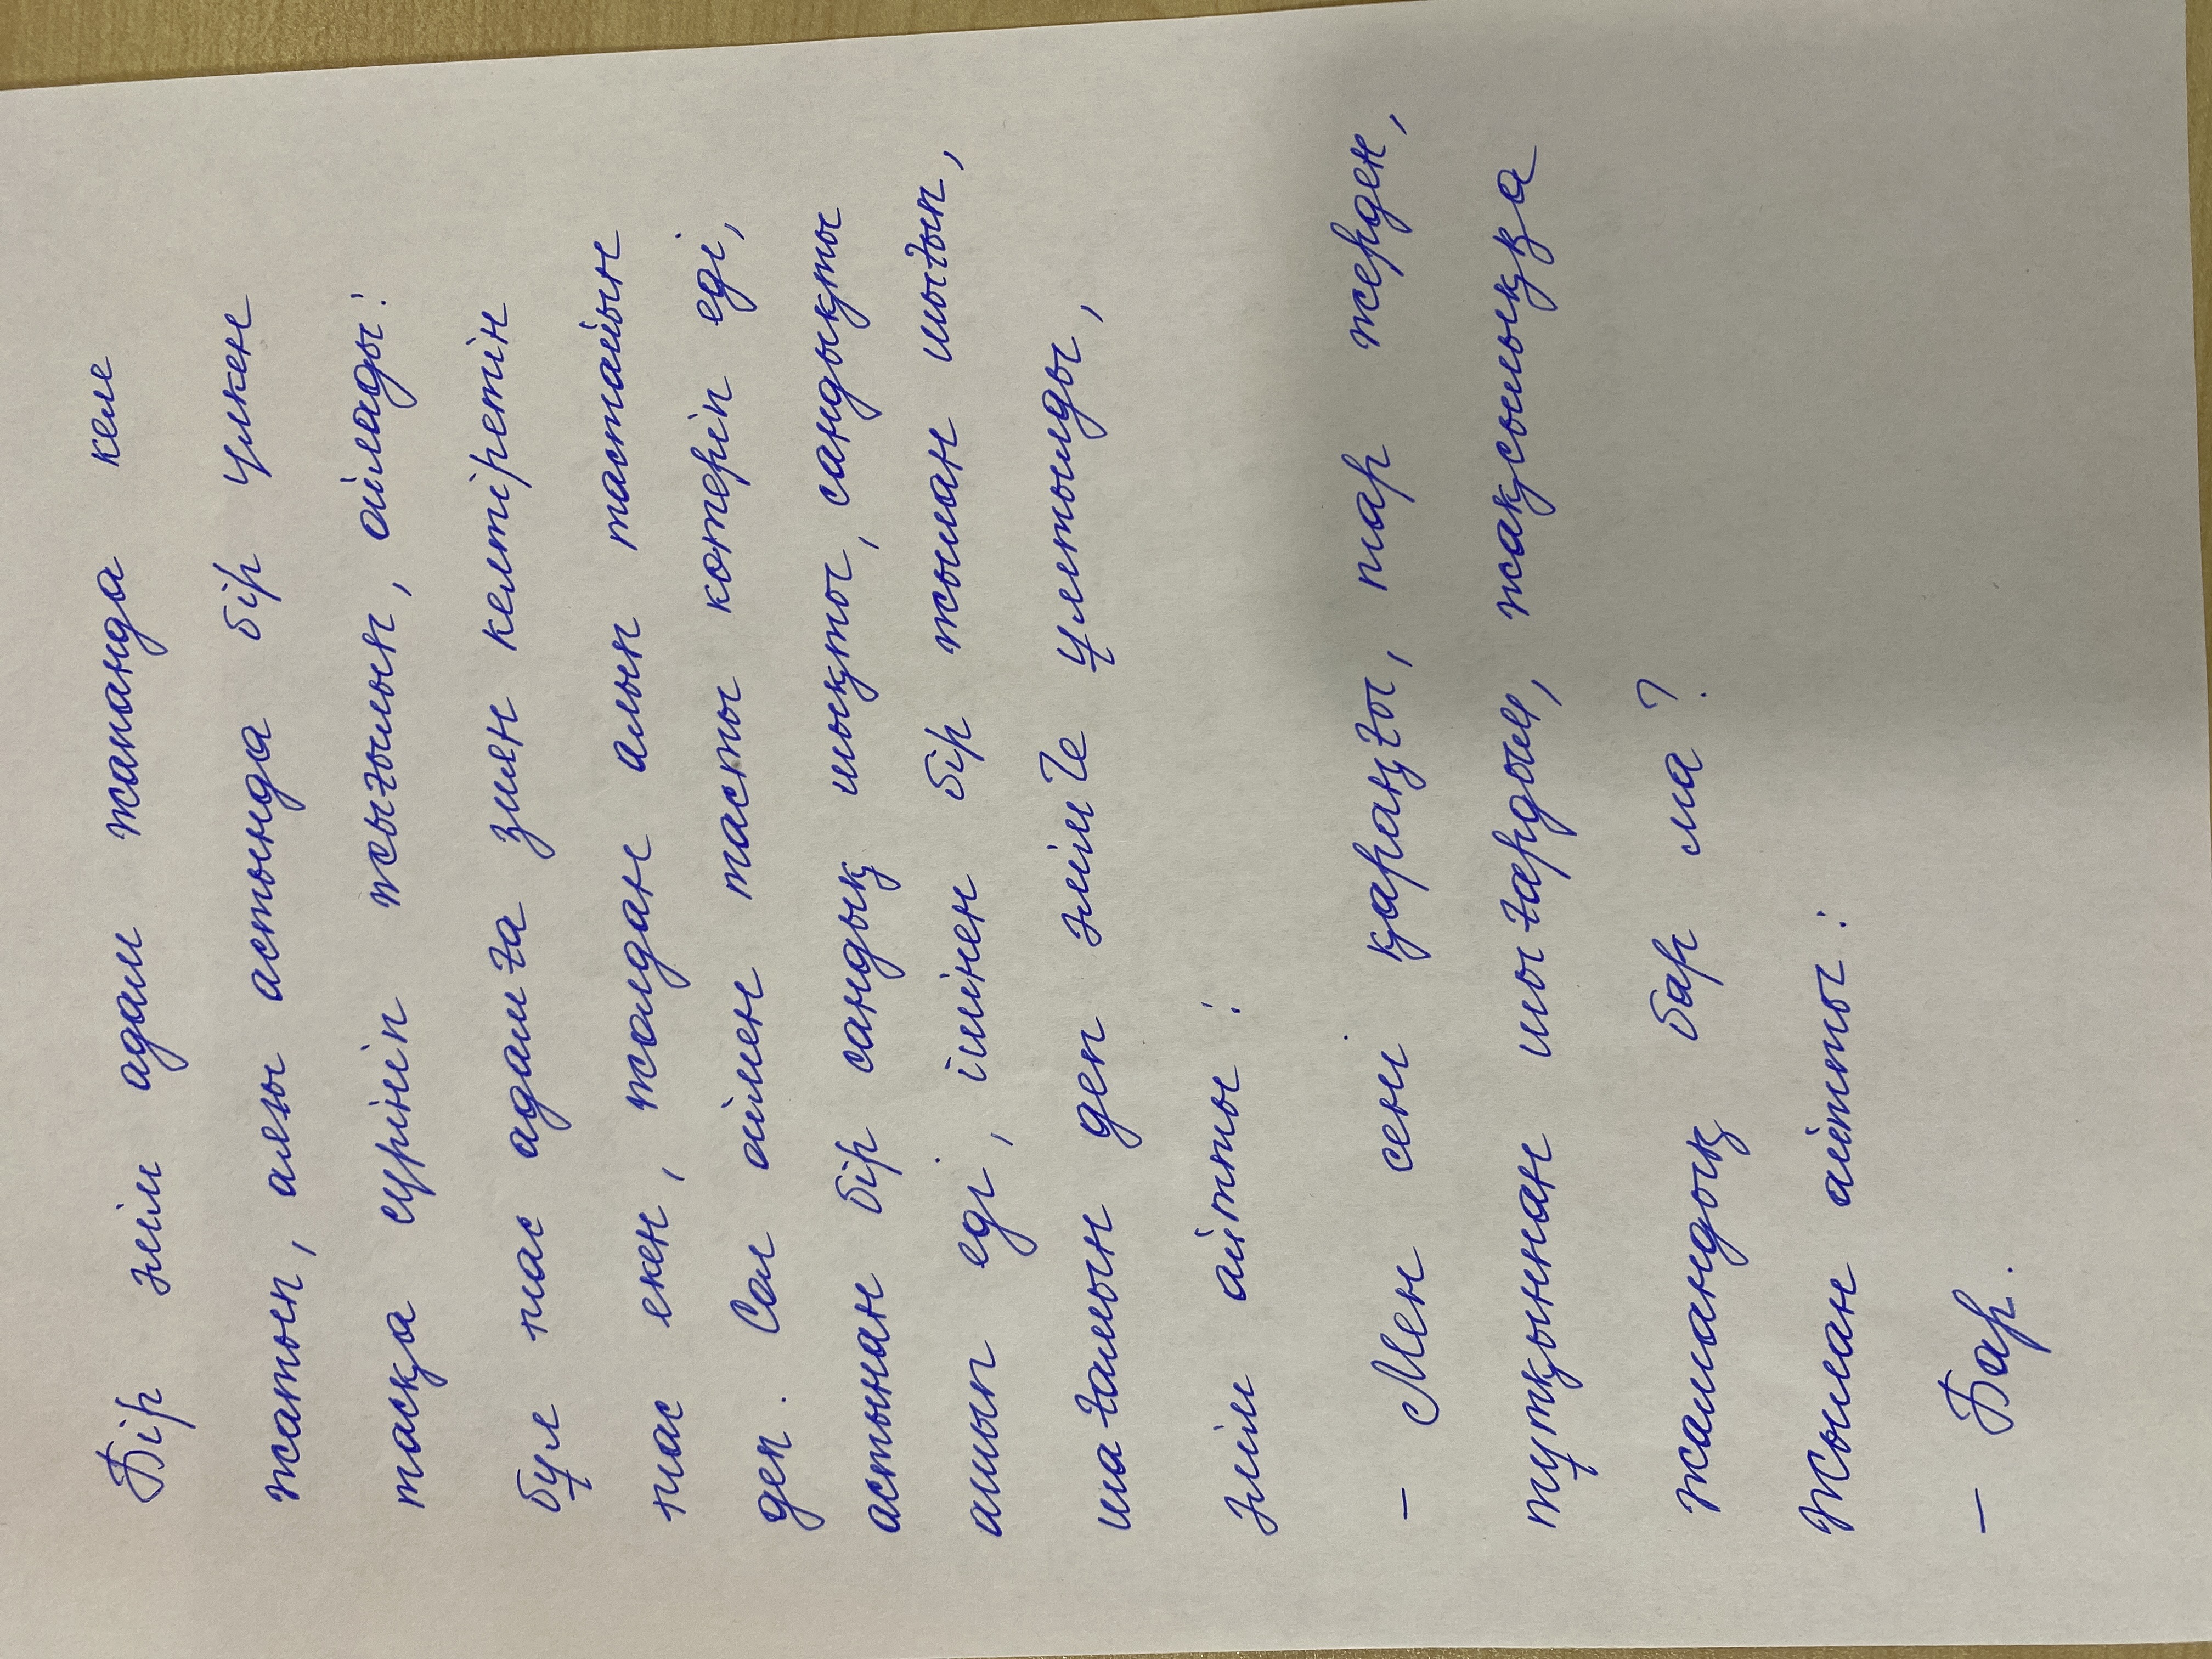 Бір әлім адам жапанда келе
жатып, аяғы астында бір үлкен
тасқа сүрініп жығылып, ойлады:
бұл тас адамға зиян келтіретін
тас екен, жолдан алып тастайын
деп. Сол оймен тасты көтеріп еді,
астынан бір сандық шықты, сандықты
ашып еді, ішінен бір жылан шығып,
шағамын деп әлімге ұмтылды,
әлім айтты:
– Мен сені қараңғы, тар жерден,
тұтқыннан шығардым, жақсылыққа
жамандық бар ма?
Жылан айтты:
– Бар.